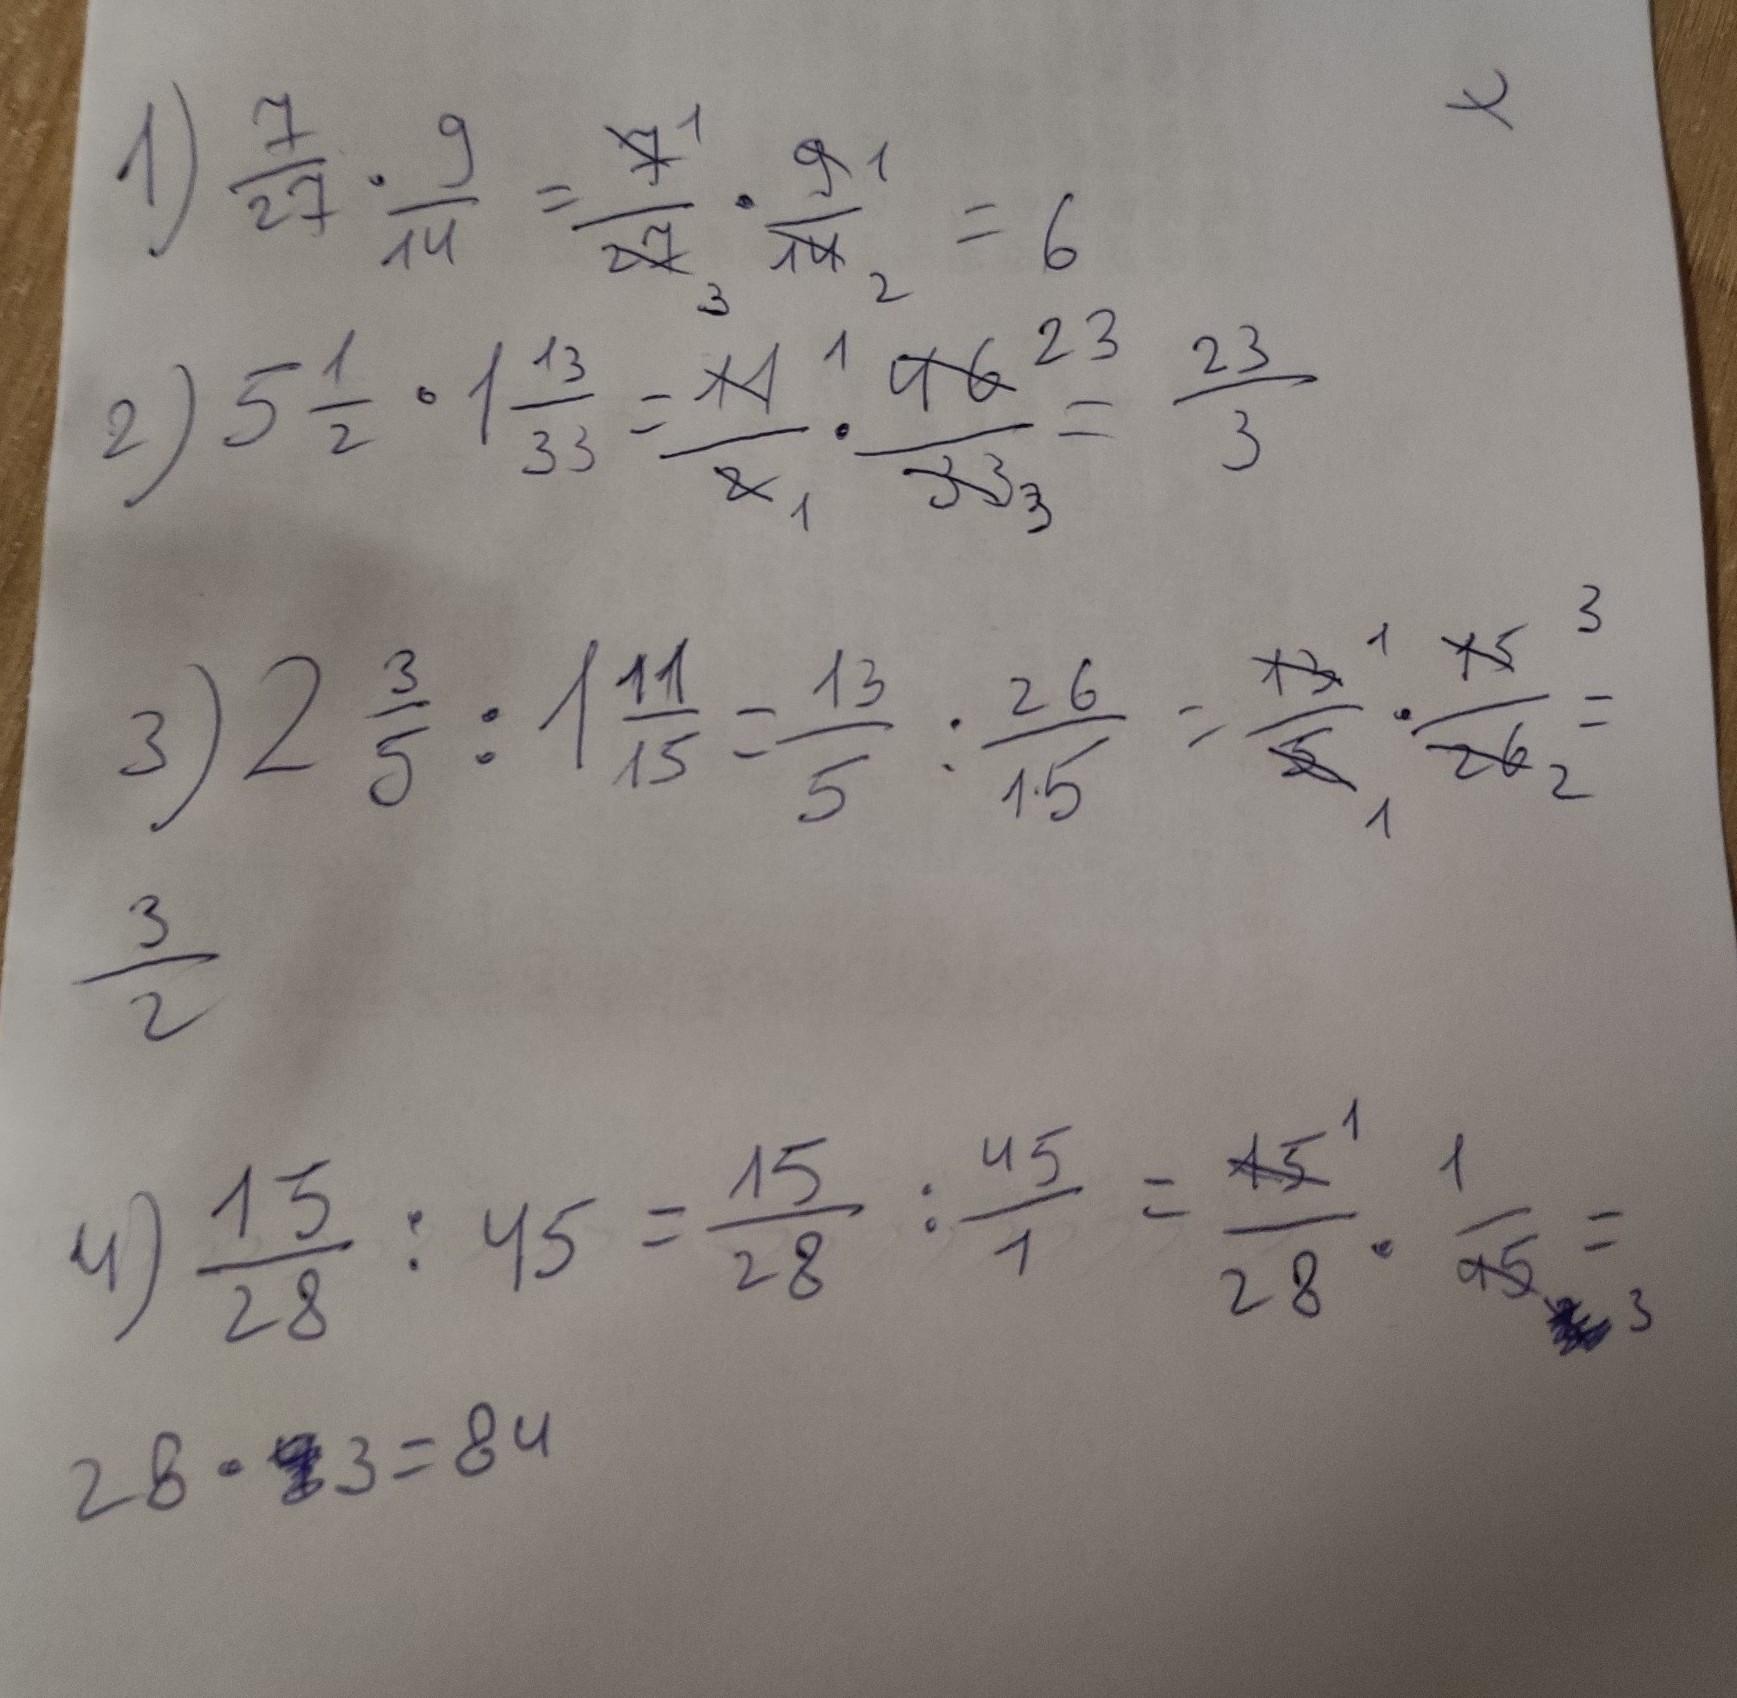 1) 7/27 · 9/14 = 7 1/27 3 · 9 1/14 2 = 6
2) 5 1/2 · 1 13/33 = 11 1/2 1 · 46 23/33 3 = 23/3
3) 2 3/5 : 1 11/15 = 13/5 : 26/15 = 13 1/5 1 · 15 3/26 2 =
3/2
4) 15/28 : 45 = 15/28 : 45/1 = 15 1/28 · 1/45 3 =
28 · 3 = 84